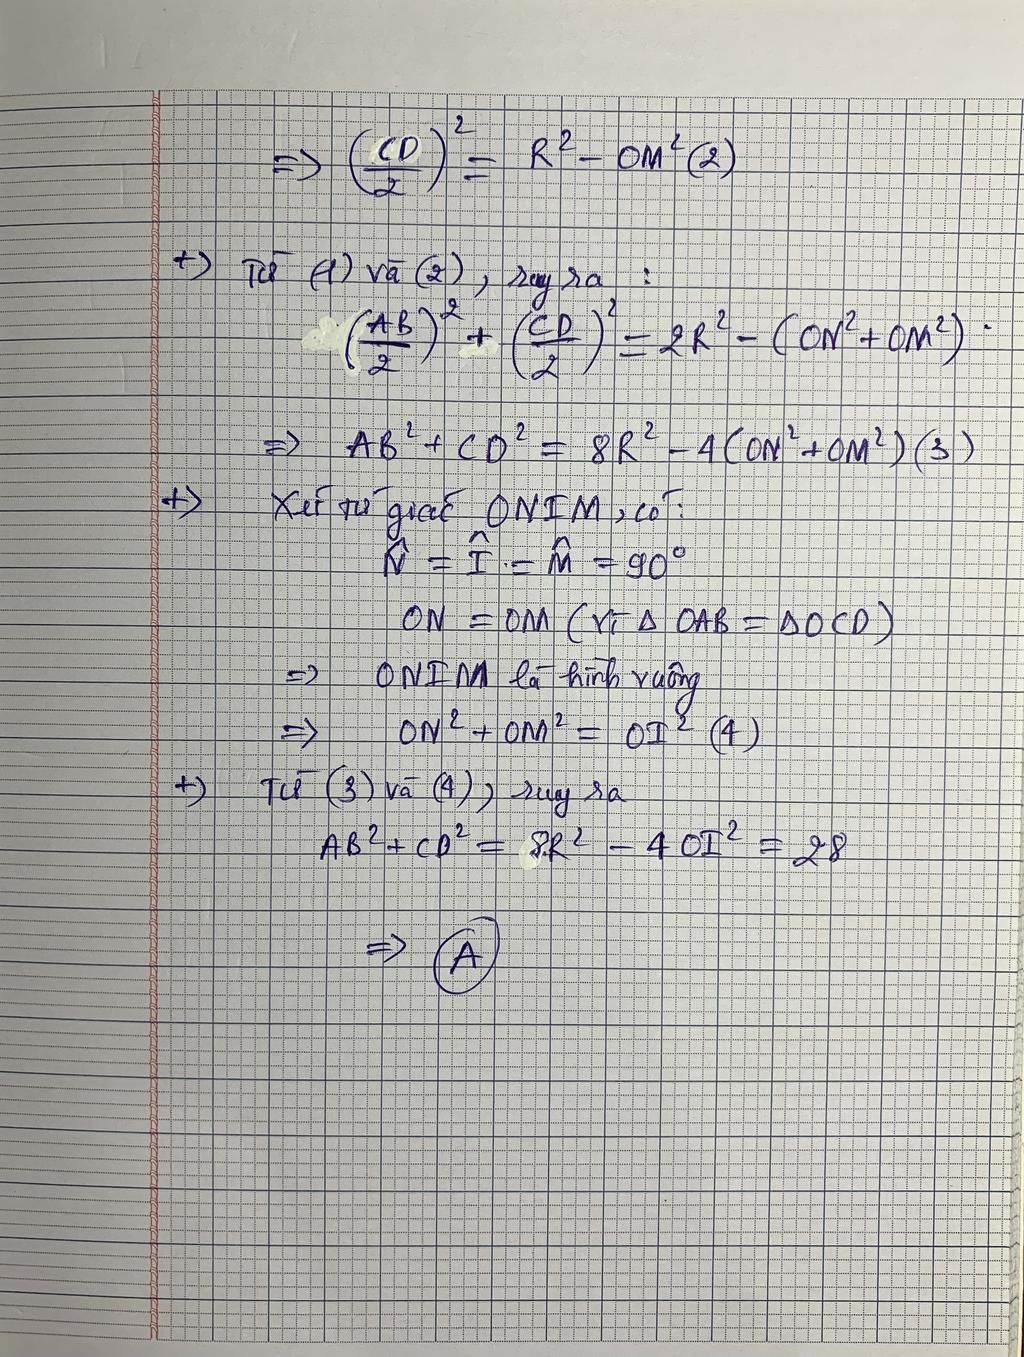 => (CD/2)² = R² - OM² (2)
+) Từ (1) và (2), suy ra :
(AB/2)² + (CD/2)² = 2R² - (ON² + OM²).
=> AB² + CD² = 8R² - 4(ON² + OM²) (3)
+) Xét tứ giác ONIM, có:
N̂ = Î = M̂ = 90°
ON = OM (vì Δ OAB = ΔOCD)
=> ONIM là hình vuông
=> ON² + OM² = OI² (4)
+) Từ (3) và (4), suy ra
AB² + CD² = 8R² - 4OI² = 28
=> A